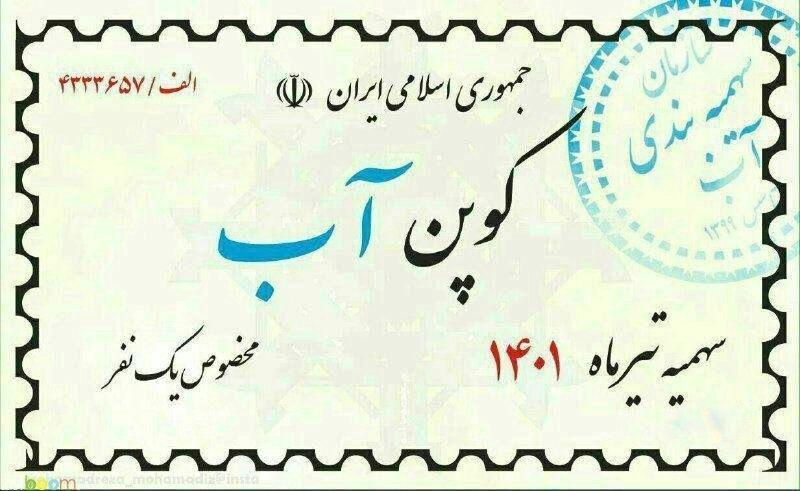 جمهوری اسلامی ایران
الف/۴۳۳۳۶۵۷
سازمان
سهمیه بندی
آب
۱۳۹۹
کوپن آب
سهمیه تیرماه ۱۴۰۱
مخصوص یک نفر